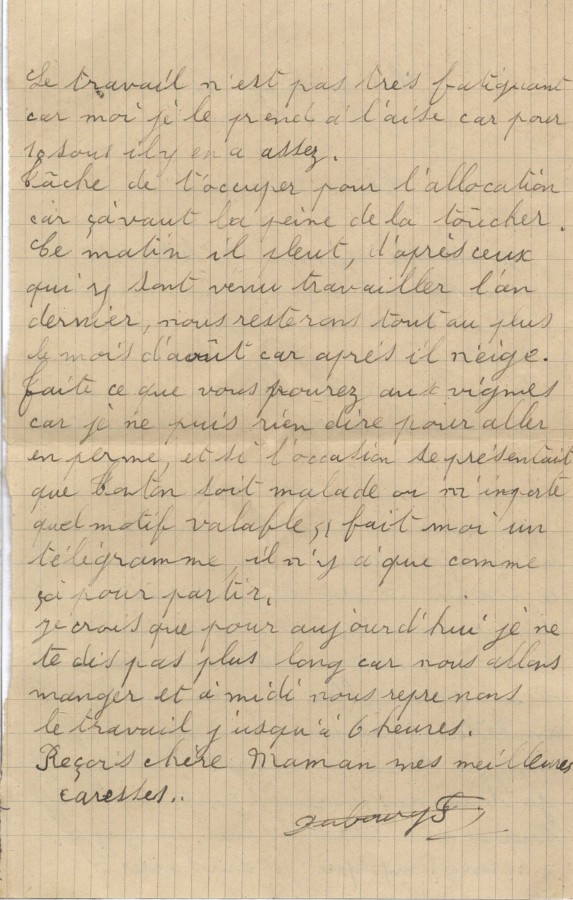 Le travail n'est pas très fatiguant
car moi je le prend à l'aise car pour
10 sous il y en a assez.
Tâche de t'occuper pour l'allocation
car çà vaut la peine de la toucher.
Ce matin il pleut, d'après ceux
qui y sont venu travailler l'an
dernier, nous resterons tout au plus
le mois d'août car après il neige.
Faite ce que vous pourez aux vignes
car je ne puis rien dire pour aller
en perme, et si l'occasion se présentait
que Tonton soit malade ou n'importe
quel motif valable, fait moi un
télégramme, il n'y a que comme
çà pour partir.
Je crois que pour aujourd'hui je ne
te dis pas plus long car nous allons
manger et à midi nous reprenons
le travail jusqu'à 6 heures.
Reçois chère Maman mes meilleures
caresses..